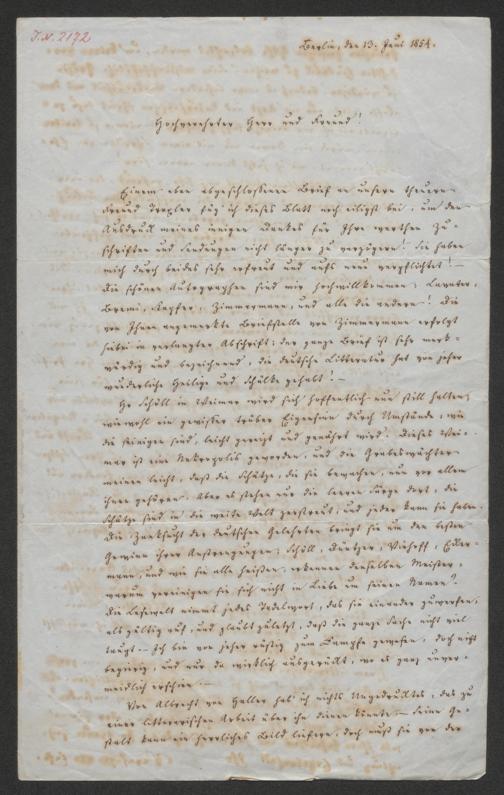 I.N. 2172
Berlin, den 13. Juni 1854.
Hochverehrter Herr und Freund!
Einem eben abgeschlossenen Brief an unsern theuren
Freund Troxler füg' ich dieses Blatt noch eiligst bei, um den
Ausdruck meines innigen Dankes für Ihre werthen Zu-
schriften und Sendungen nicht länger zu verzögern! Sie haben
mich durch beides sehr erfreut und aufs neue verpflichtet! —
Die schönen Autographen sind mir hochwillkommen; Lavater,
Bremi, Kapfer, Zimmermann, und alle die andern! Die
von Ihnen angemerkte Briefstelle von Zimmermann erfolgt
hiebei in verlangter Abschrift; der ganze Brief ist sehr merk-
würdig und bezeichnend, die deutsche Litteratur hat von jeher
wunderliche Heilige und Schälke gehabt! —
Hr Schöll in Weimar wird sich hoffentlich nun still halten,
wiewohl ein gewisser trüber Eigensinn durch Umstände, wie
die seinigen sind, leicht gereizt und genährt wird. Dieses Wei-
mar ist eine Nekropolis geworden, und die Grabeswächter
meinen leicht, daß die Schätze, die sie bewachen, nun vor allem
ihnen gehören. Aber es stehen nur die leeren Särge dort, die
Schätze sind in die weite Welt zerstreut, und jeder kann sie haben.
Die Zanksucht der deutschen Gelehrten bringt sie um den besten
Gewinn ihrer Anstrengungen; Schöll, Düntzer, Viehoff, Ecker-
mann, und wie sie alle heißen, erkennen denselben Meister,
warum vereinigen sie sich nicht in Liebe um seinen Namen?
Die Lesewelt nimmt jedes Tadelwort, das sie einander zuwerfen,
als gültig auf, und glaubt zuletzt, daß die ganze Sache nicht viel
taugt. — Ich bin von jeher rüstig zum Kampfe gewesen, doch nicht
begierig, und nur da wirklich ausgerückt, wo es ganz unver-
meidlich erschien. —
Von Albrecht von Haller hab' ich nichts Ungedrucktes, das zu
einer litterarischen Arbeit über ihn dienen könnte. — Seine Ge-
stalt kann ein herrliches Bild liefern, doch muß sie von der